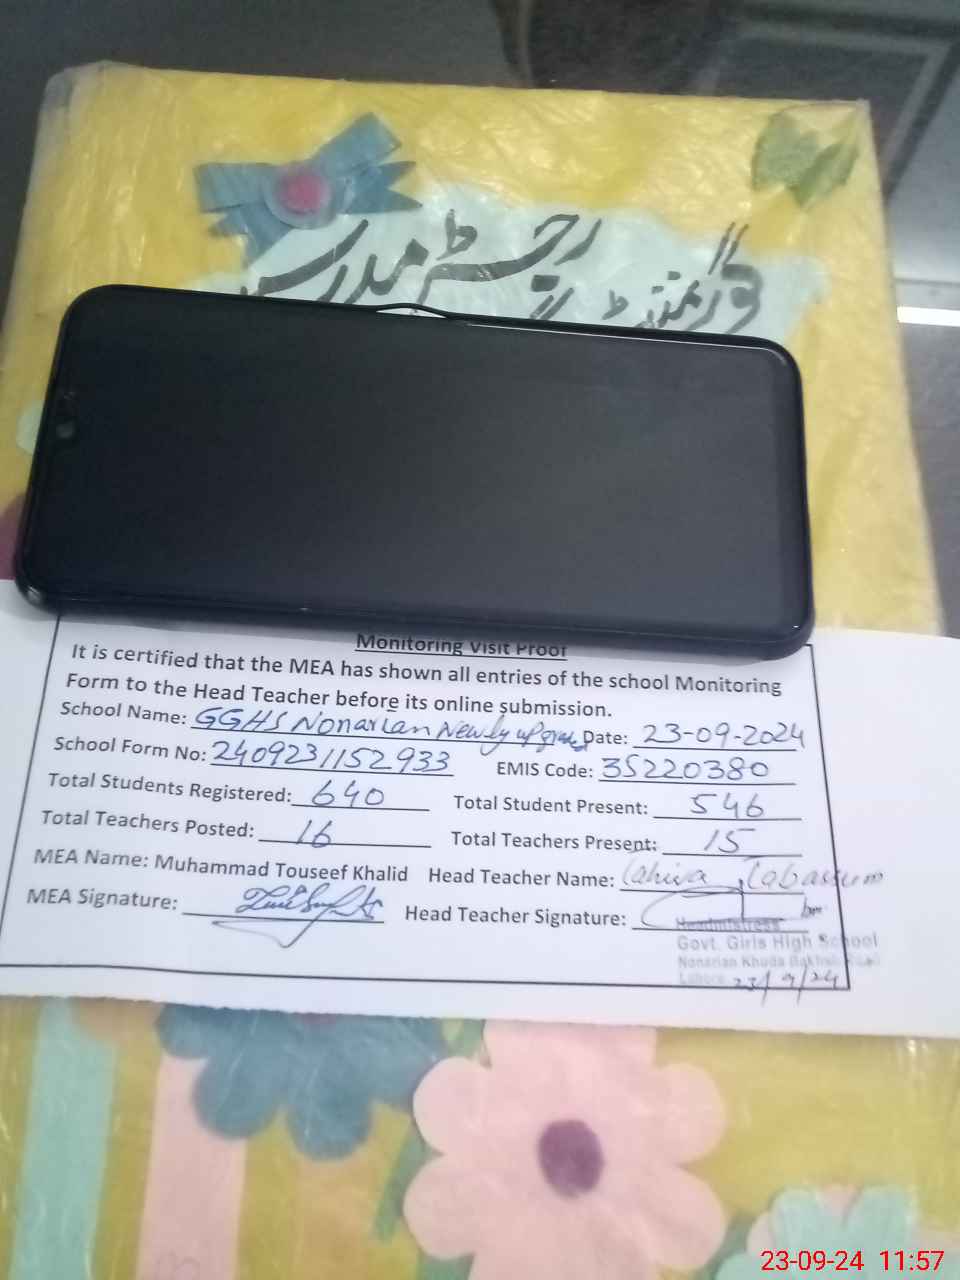 گورنمنٹ
رجسٹر مدرسہ
Monitoring Visit Proof
It is certified that the MEA has shown all entries of the school Monitoring
Form to the Head Teacher before its online submission.
School Name: GGHS Nonarian Newly upgrad Date: 23-09-2024
School Form No: 2409231152933 EMIS Code: 35220380
Total Students Registered: 640 Total Student Present: 546
Total Teachers Posted: 16 Total Teachers Present: 15
MEA Name: Muhammad Touseef Khalid Head Teacher Name: Tabassum
MEA Signature: Head Teacher Signature:
Headmistress
Govt. Girls High School
Nonarian Khuda Bakhsh
Lahore 23/9/24
23-09-24 11:57